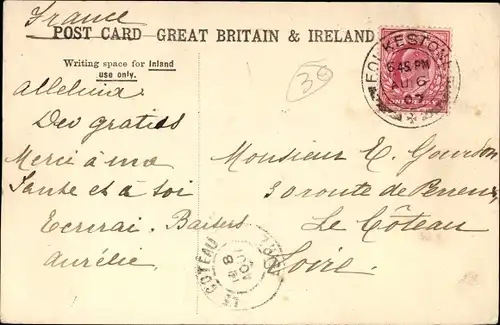 France
POST CARD GREAT BRITAIN & IRELAND
Writing space for Inland
use only.
36
FOLKESTONE
6.45 PM
AU 6
07
alleluia
Deo gratias
Merci à ma
Tante et à toi
Ecrirai. Baisers
Aurélie.
Monsieur E. Gourdon
30 route de
Le Côteau
Loire.
COTEAU
8